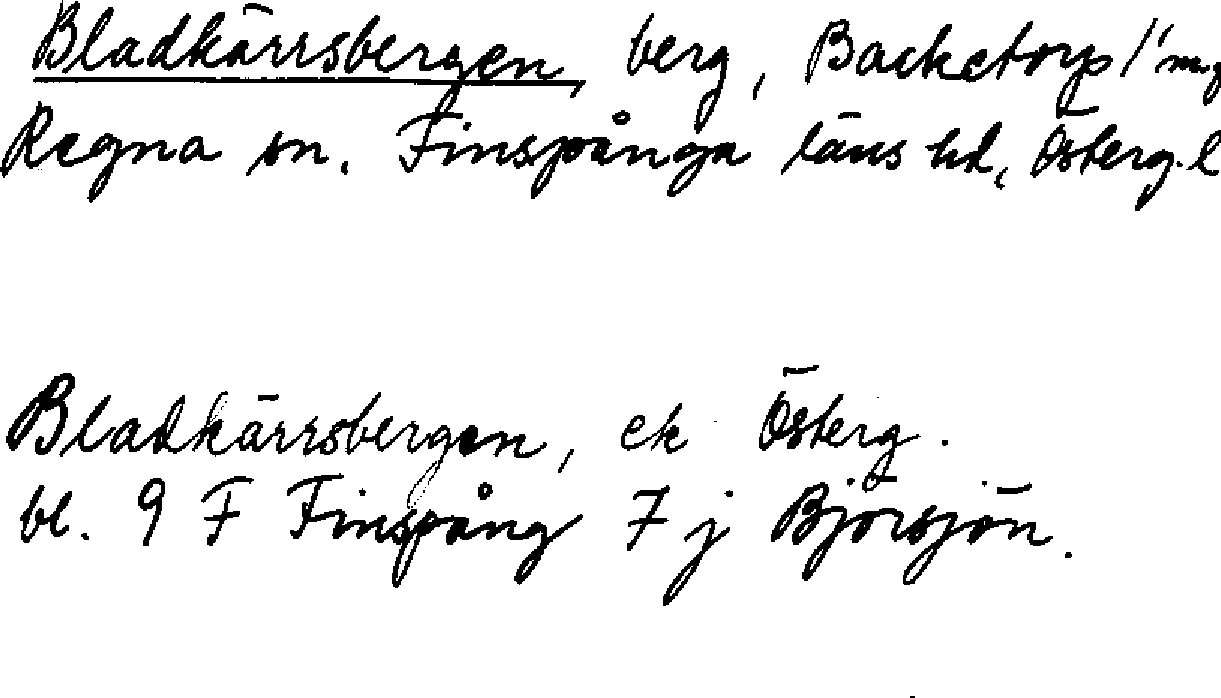 Bladkärrsbergen, berg, Backetorp 1/1 m.fl
Regna sn. Finspånga läns hd, Österg. l
Bladkärrsbergen, ek Österg.
bl. 9 F Finspång 7 j Björsjön.